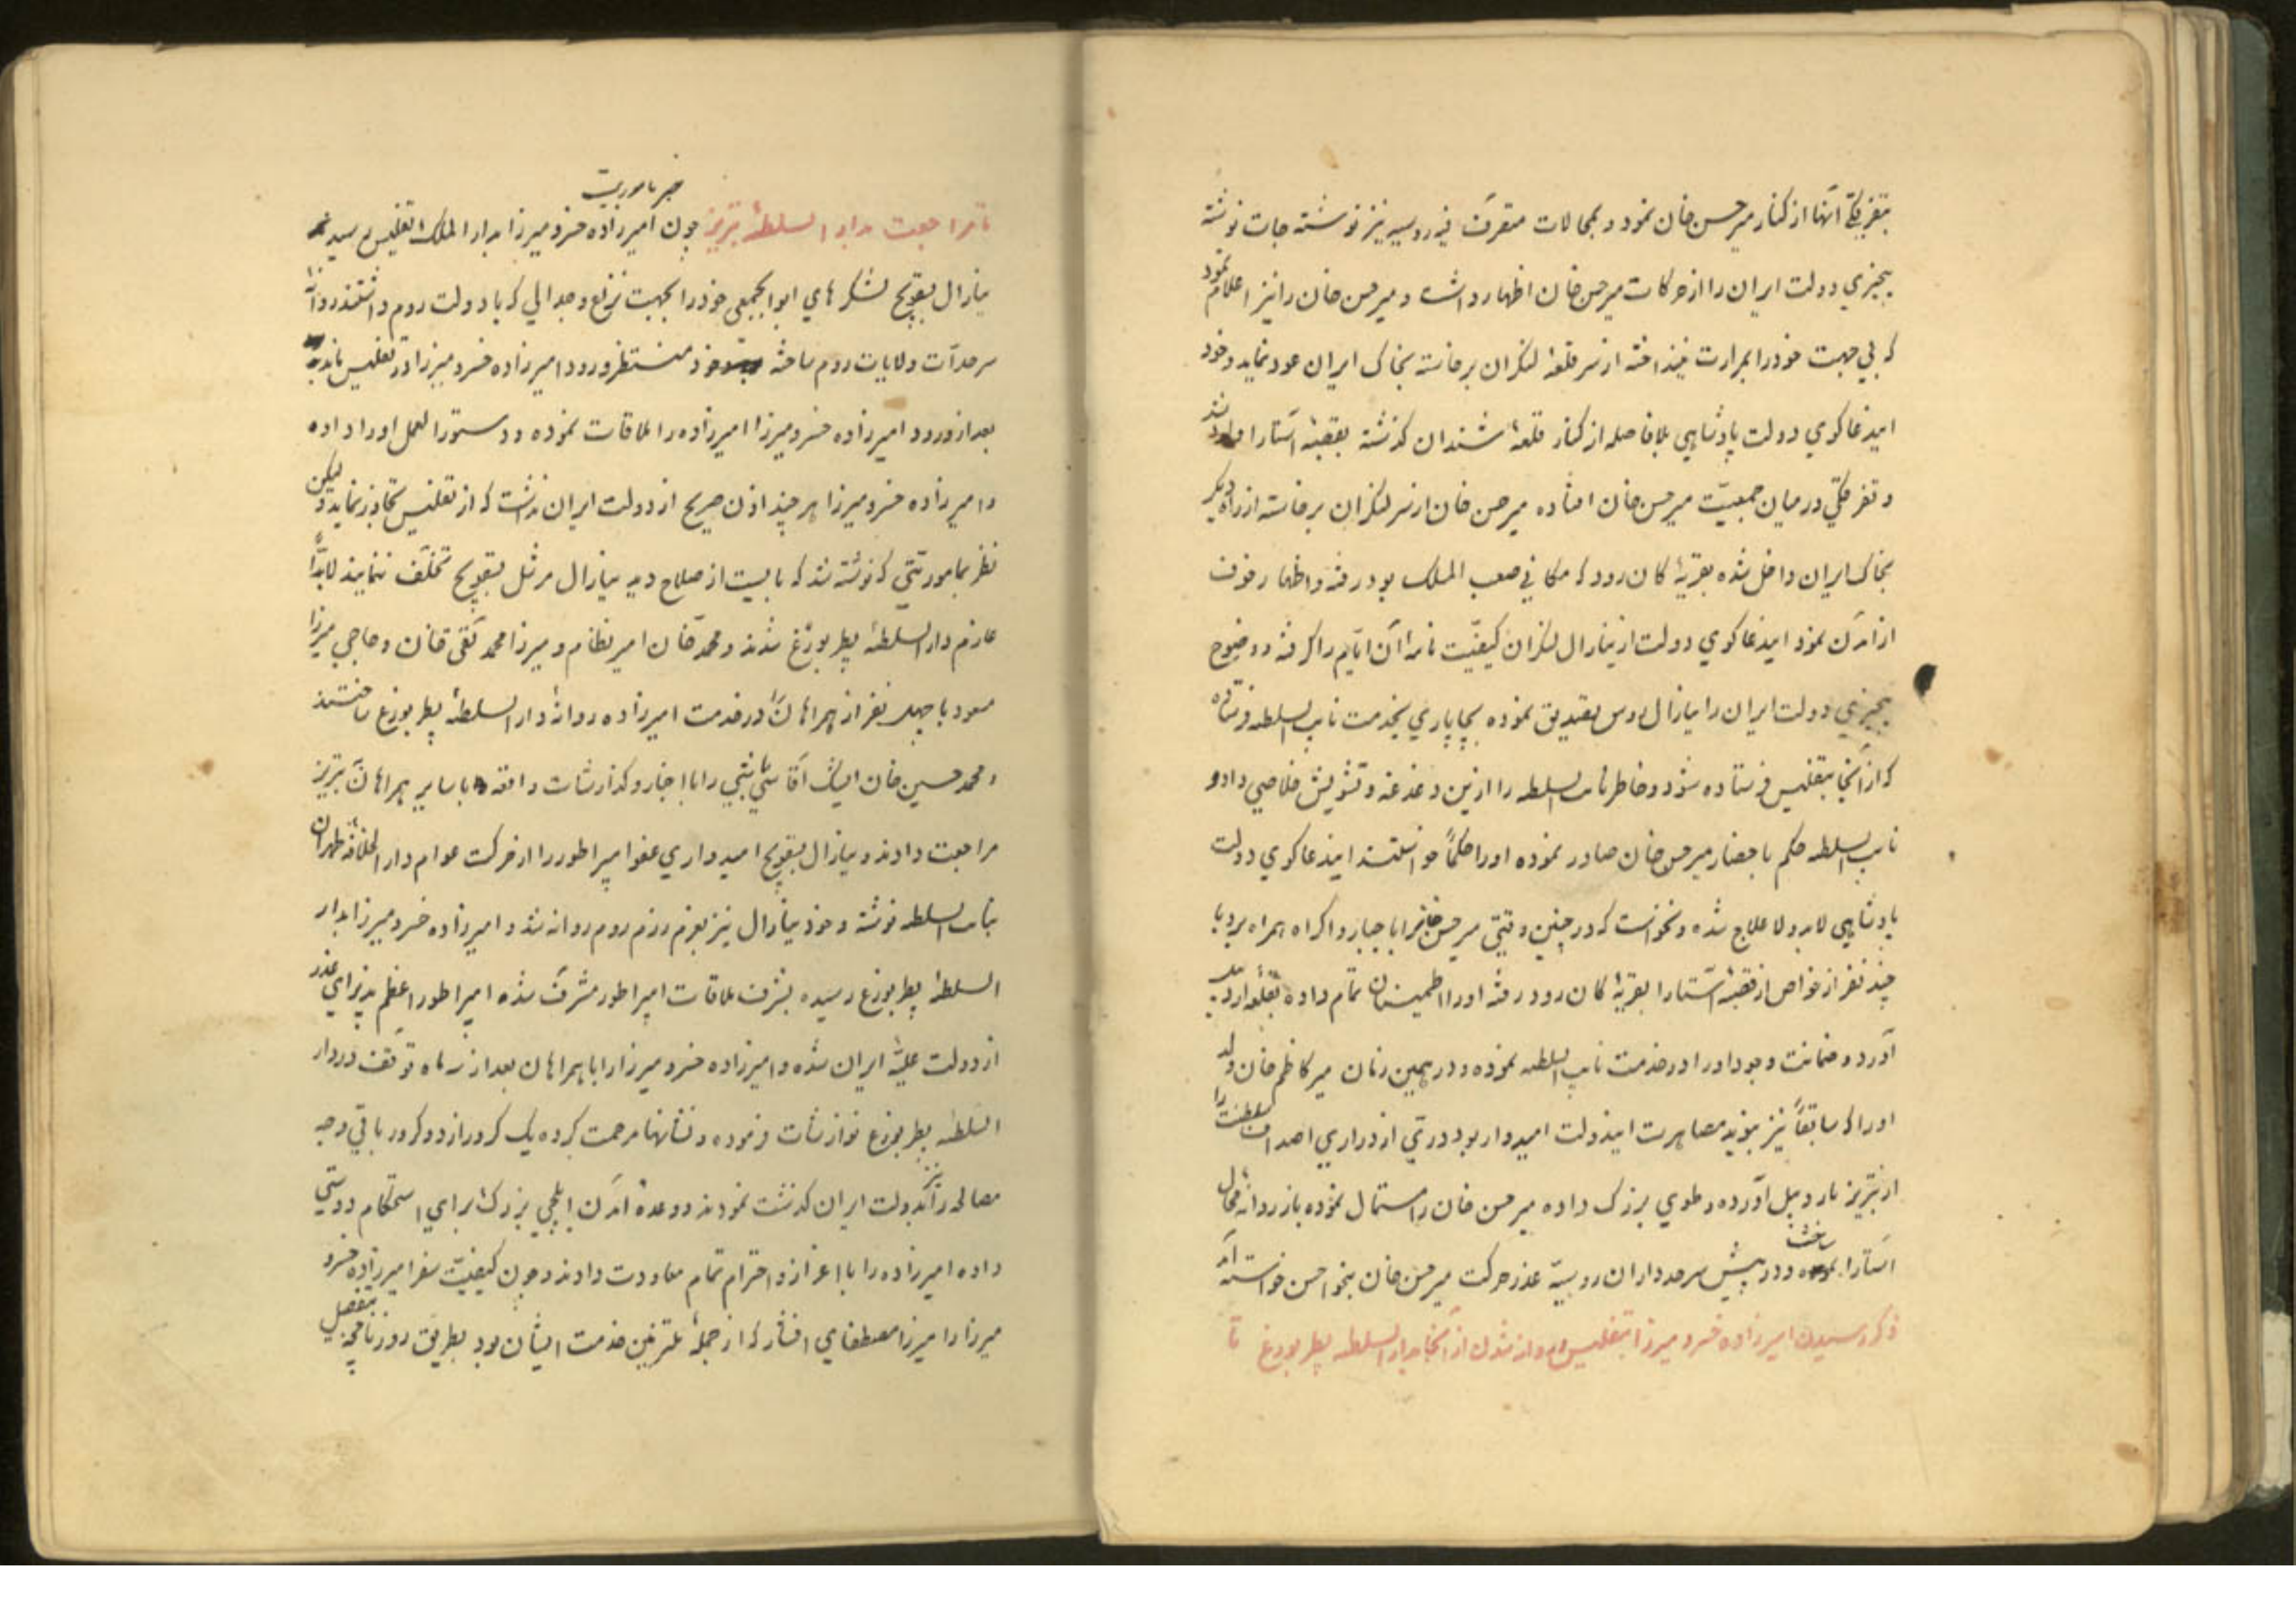 بتفرقگی آنها از کنار میر حسن خان نمود و بمحالات متفرقه روسیه نیز نوشته جات نوشته
بیخبری دولت ایران را از حرکات میر حسن خان اظهار داشت و میر حسن خان را نیز اعلام نمود
که بی جهت خود را بمرارت نینداخته از سر قلعهٔ لنکران برخاسته بخاک ایران عود نماید و خود
ایندعاکوی دولت پادشاهی بلافاصله از کنار قلعهٔ شندان کذشته بقصبهٔ آستارا
و تفرقکی در میان جمعیّت میر حسن خان افتاده میر حسن خان از سر لنکران برخاسته از راه دیکر
بخاک ایران داخل شده بقریهٔ کان رود که مکانی صعب المسلک بود رفته و اظهار خوف
از آمدن نمود ایندعاکوی دولت از ینارال لنکران کیفیّت نامهٔ آن ایّام را کرفته و وضوح
بیخبری دولت ایران را ینارال روس تصدیق نموده بچاپاری بخدمت نایب السلطه فرستاده
که از آنجا بتفلیس فرستاده شود و خاطر نایب السلطه را ازین دغدغه و تشویش خلاصی داد و
نایب السلطه حکم باحضار میر حسن خان صادر نموده او را حکماً خواستند ایندعاکوی دولت
پادشاهی لابد و لاعلاج شده و نخواست که در چنین وقتی میر حسن خانرا باجبار و اکراه همراه برد با
چند نفر از خواص از قصبهٔ آستارا بقریهٔ کان رود رفته او را اطمینان تمام داده بقلعه اردبیل
آورد و ضمانت وجود او را در خدمت نایب السلطه نموده و در همین زمان میر کاظم خان ولد
او را که سابقاً نیز بنوید مصاهرت ایندولت امیدوار بود درّتی از دراری اصداف سلطنت را
از تبریز باردبیل آورده و طوی بزرک داده میر حسن خان را استمال نموده باز روانهٔ محال
آستارا ساخت و در پیش سرحدداران روسیّه عذر حرکت میر حسن خان بنحو احسن خواسته آمد
ذکر رسیدن امیرزاده خسرو میرزا بتفلیس و روانه شدن از آنجا بدار السلطه پطربورغ تا
تا مراجعت بدار السلطهٔ تبریز چون امیرزاده خسرو میرزا بدار الملک تفلیس رسید خبر ماموریت
ینارال بسقویچ لشکرهای ابوابجمعی خود را بجهت نزاع و جدالی که با دولت روم داشتند روانهٔ
سرحدّات ولایات روم ساخته و خود منتظر ورود امیرزاده خسرو میرزا در تفلیس مانده
بعد از ورود امیرزاده خسرو میرزا امیرزاده را ملاقات نموده و دستور العمل او را داده
و امیرزاده خسرو میرزا هر چند اذن صریح از دولت ایران نداشت که از تفلیس تجاوز نماید و لیکن
نظر بماموریّتی که نوشته شد که بایست از صلاح دید ینارال مرشل بسقویچ تخلّف ننمایند لابدّاً
عازم دار السلطهٔ پطربورغ شدند و محمد خان امیر نظام و میرزا محمد تقی خان و حاجی میرزا
مسعود با چهل نفر از همراهان در خدمت امیرزاده روانهٔ دار السلطهٔ پطربورغ ساختند
و محمد حسین خان ایشک آقاسی باشی را با اخبار و کذارشات واقعه با سایر همراهان بتبریز
مراجعت دادند و ینارال بسقویچ امیدواری عفو امپراطور را از حرکت عوام دار الخلافهٔ طهران
بنایب السلطه نوشته و خود ینارال نیز بعزم رزم روم روانه شد و امیرزاده خسرو میرزا بدار
السلطهٔ پطربورغ رسیده بشرف ملاقات امپراطور مشرّف شده امپراطور اعظم پذیرای عذر
از دولت علیّهٔ ایران شده و امیرزاده خسرو میرزا را با همراهان بعد از سه ماه توقّف در دار
السّلطهٔ پطربورغ نوازشات فرموده و نشانها مرحمت کرده یک کرور از دو کرور باقی وجه
مصالحه را نیز بدولت ایران کذشت نمودند و وعدهٔ آمدن ایلچی بزرک برای استحکام دوستی
داده امیرزاده را با اعزاز و احترام تمام معاودت دادند و چون کیفیّت سفر امیرزاده خسرو
میرزا را میرزا مصطفای افشار که از جملهٔ ملتزمین خدمت ایشان بود بطریق روزنامچه مفصل